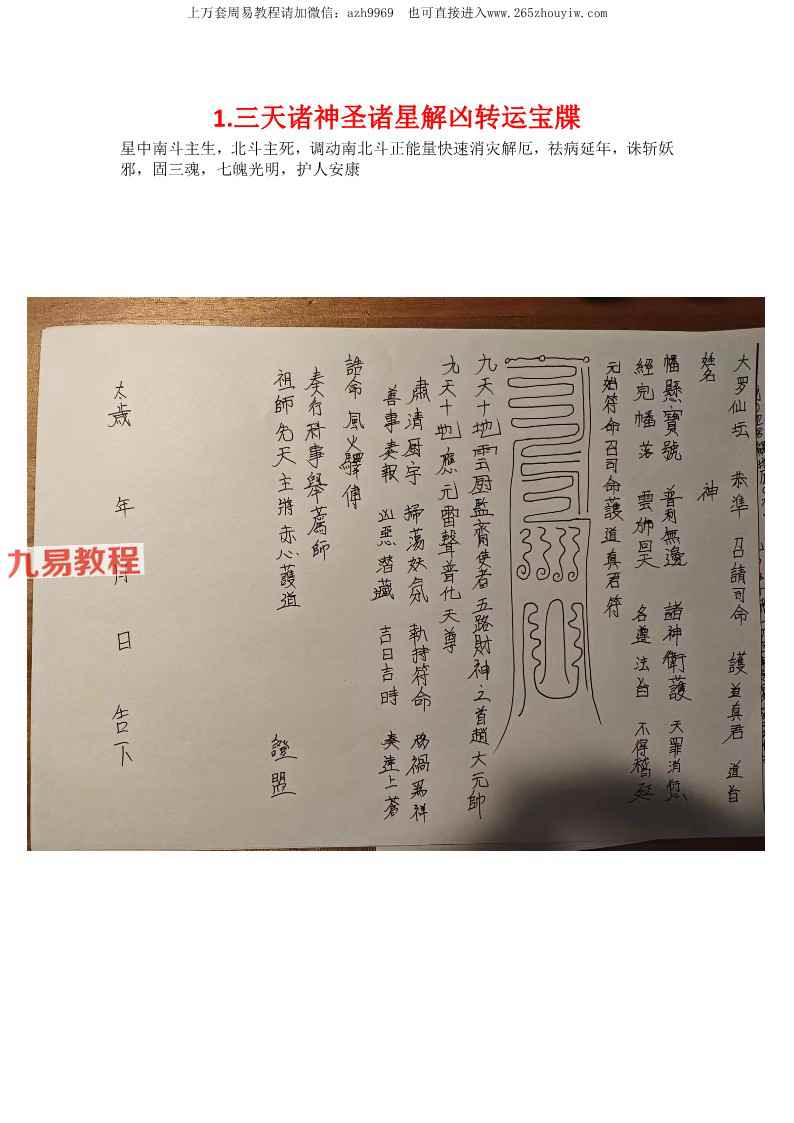 上万套周易教程请加微信：azh9969 也可直接进入www.265zhouyiw.com
1.三天诸神圣诸星解凶转运宝牒
星中南斗主生，北斗主死，调动南北斗正能量快速消灾解厄，祛病延年，诛斩妖
邪，固三魂，七魄光明，护人安康
大罗仙坛 恭準 召請司命 護道真君 道旨
姓名 神
幡懸寶號 普利無邊 諸神衛護 天罪消愆
經完幡落 雲旆回天 各遵法旨 不得稽延
元始符命召司命護道真君符
九天十地雷厨監齋使者五路財神之首趙大元帥
九天十地應元雷聲普化天尊
肅清厨宇 掃蕩妖氛 執持符命 為禍為祥
善事奏報 凶惡潜藏 吉日吉時 奏達上蒼
誥命風火驛傳
奏行科事舉薦師
祖師先天主將赤心護道 證盟
太歲 年 月 日 告下
九易教程